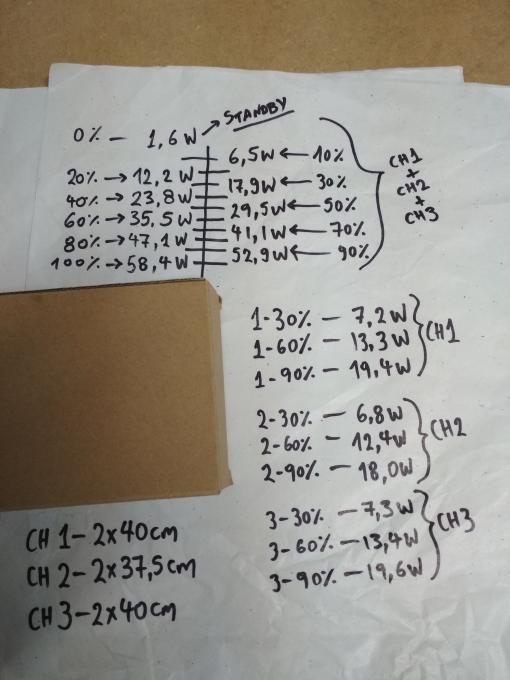 0% — 1,6W → STANDBY
6,5W ← 10%
20% → 12,2W
17,9W ← 30%
40% → 23,8W
29,5W ← 50%
60% → 35,5W
41,1W ← 70%
80% → 47,1W
52,9W ← 90%
100% → 58,4W
CH1
+
CH2
+
CH3
1-30% — 7,2W
1-60% — 13,3W
1-90% — 19,4W
CH1
2-30% — 6,8W
2-60% — 12,4W
2-90% — 18,0W
CH2
3-30% — 7,3W
3-60% — 13,4W
3-90% — 19,6W
CH3
CH 1 - 2x40cm
CH 2 - 2x37,5cm
CH 3 - 2x40cm